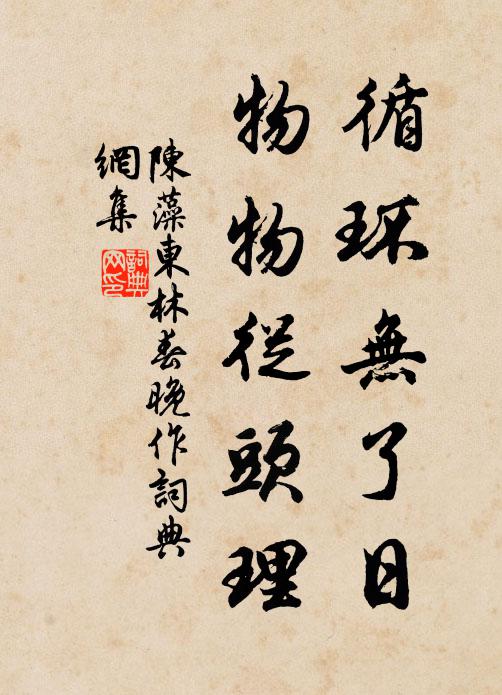 循环無了日
物物從頭理
陳藻東林春晚作詞典
網集
詞典
网印